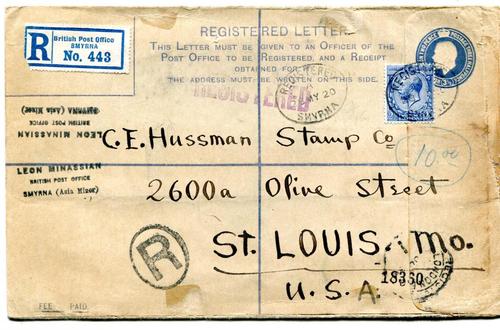 R
British Post Office
SMYRNA
No. 443
REGISTERED LETTER.
THIS LETTER MUST BE GIVEN TO AN OFFICER OF THE
POST OFFICE TO BE REGISTERED, AND A RECEIPT
OBTAINED FOR IT.
THE ADDRESS MUST BE WRITTEN ON THIS SIDE.
REGISTERED
REGISTERED
MY 20
SMYRNA
LEON MINASSIAN
BRITISH POST OFFICE
SMYRNA (Asia Minor)
LEON MINASSIAN
BRITISH POST OFFICE
SMYRNA (Asia Minor)
C. E. Hussman Stamp Co
10.00
2600a Olive Street
St. LOUIS. Mo.
R
18350
LONDON
U. S. A.
FEE PAID.